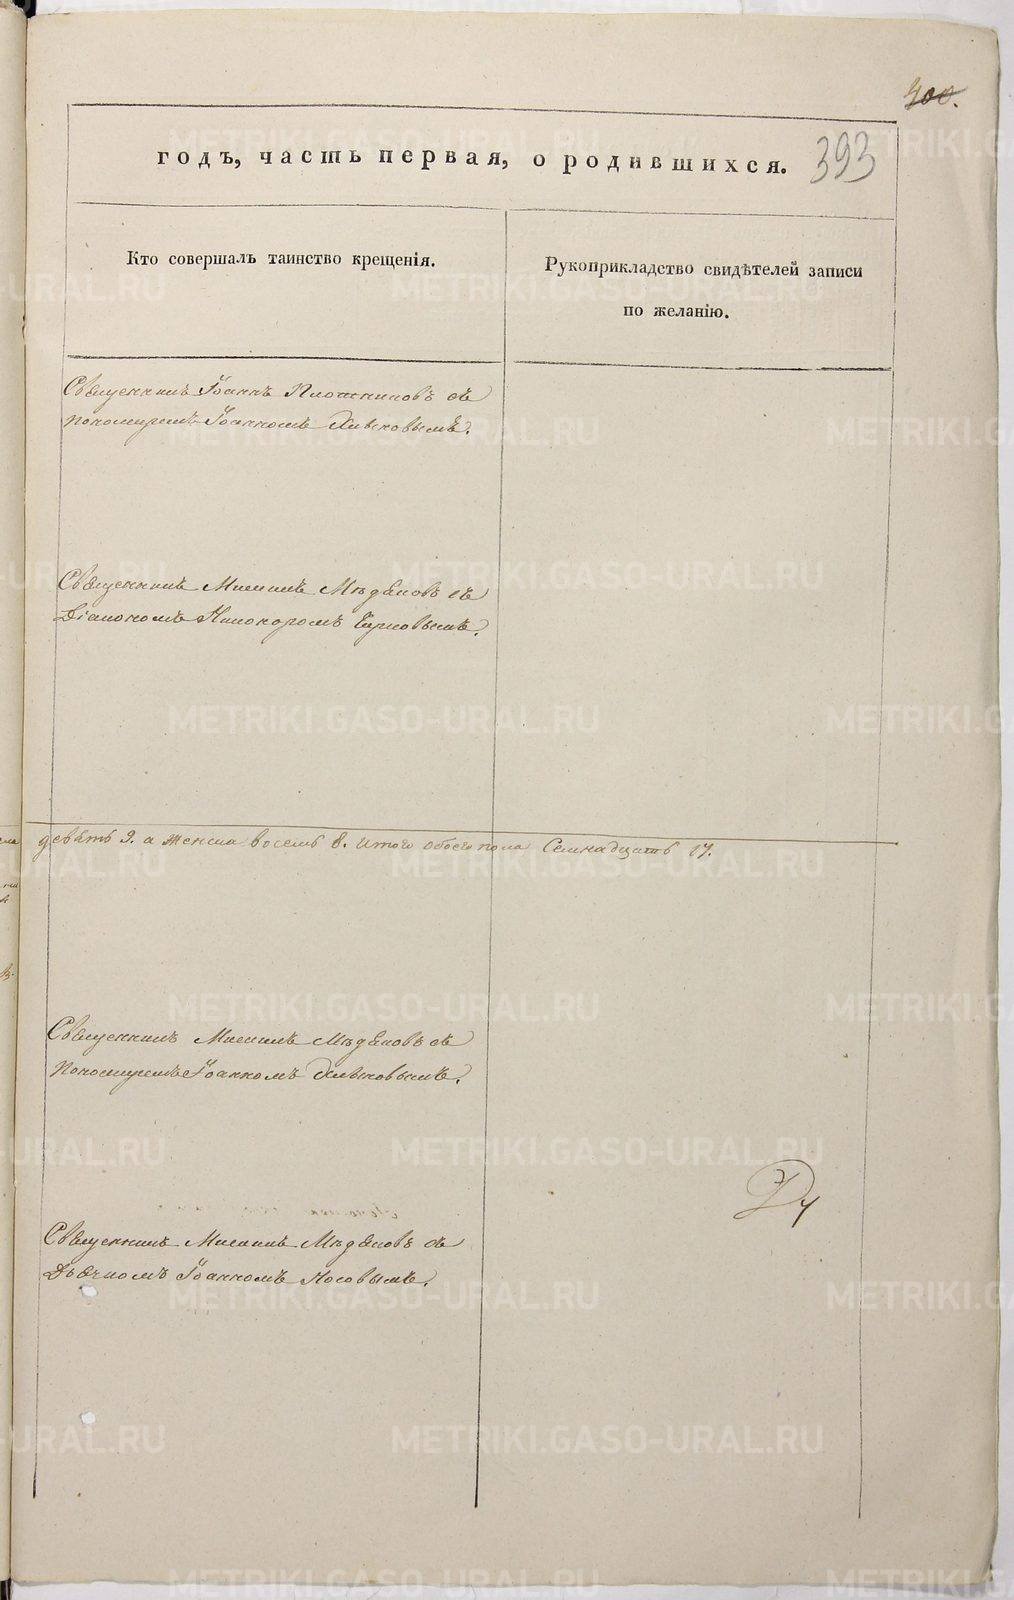 400.
393
годъ, часть первая, о родившихся.
Кто совершалъ таинство крещенія.
Рукоприкладство свидѣтелей записи
по желанію.
Священникъ Іоаннъ Плотниковъ съ
пономаремъ Іоанномъ Хлыновымъ.
Священникъ Михаилъ съ
Діакономъ Никаноромъ
девять 9. а женска восемь 8. итого обоего пола Семнадцать 17.
Священникъ Михаилъ съ
Пономаремъ Іоанномъ Хлыновымъ.
Священникъ Михаилъ съ
Дьячкомъ Іоанномъ Носовымъ.
METRIKI.GASO-URAL.RU